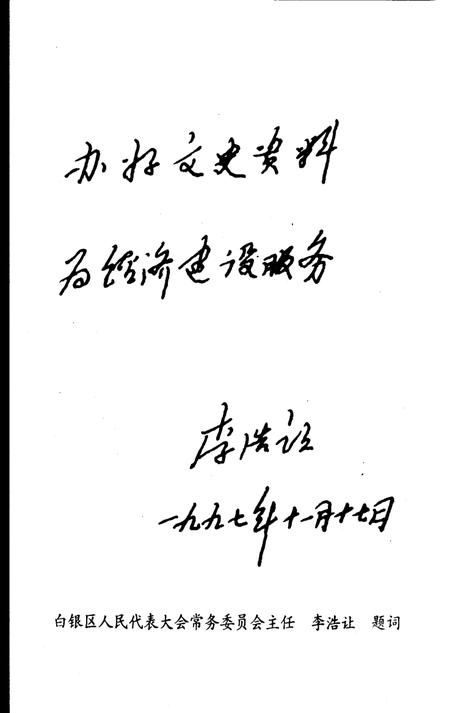 办好文史资料
为经济建设服务
李浩让
一九九七年十一月十七日
白银区人民代表大会常务委员会主任 李浩让 题词